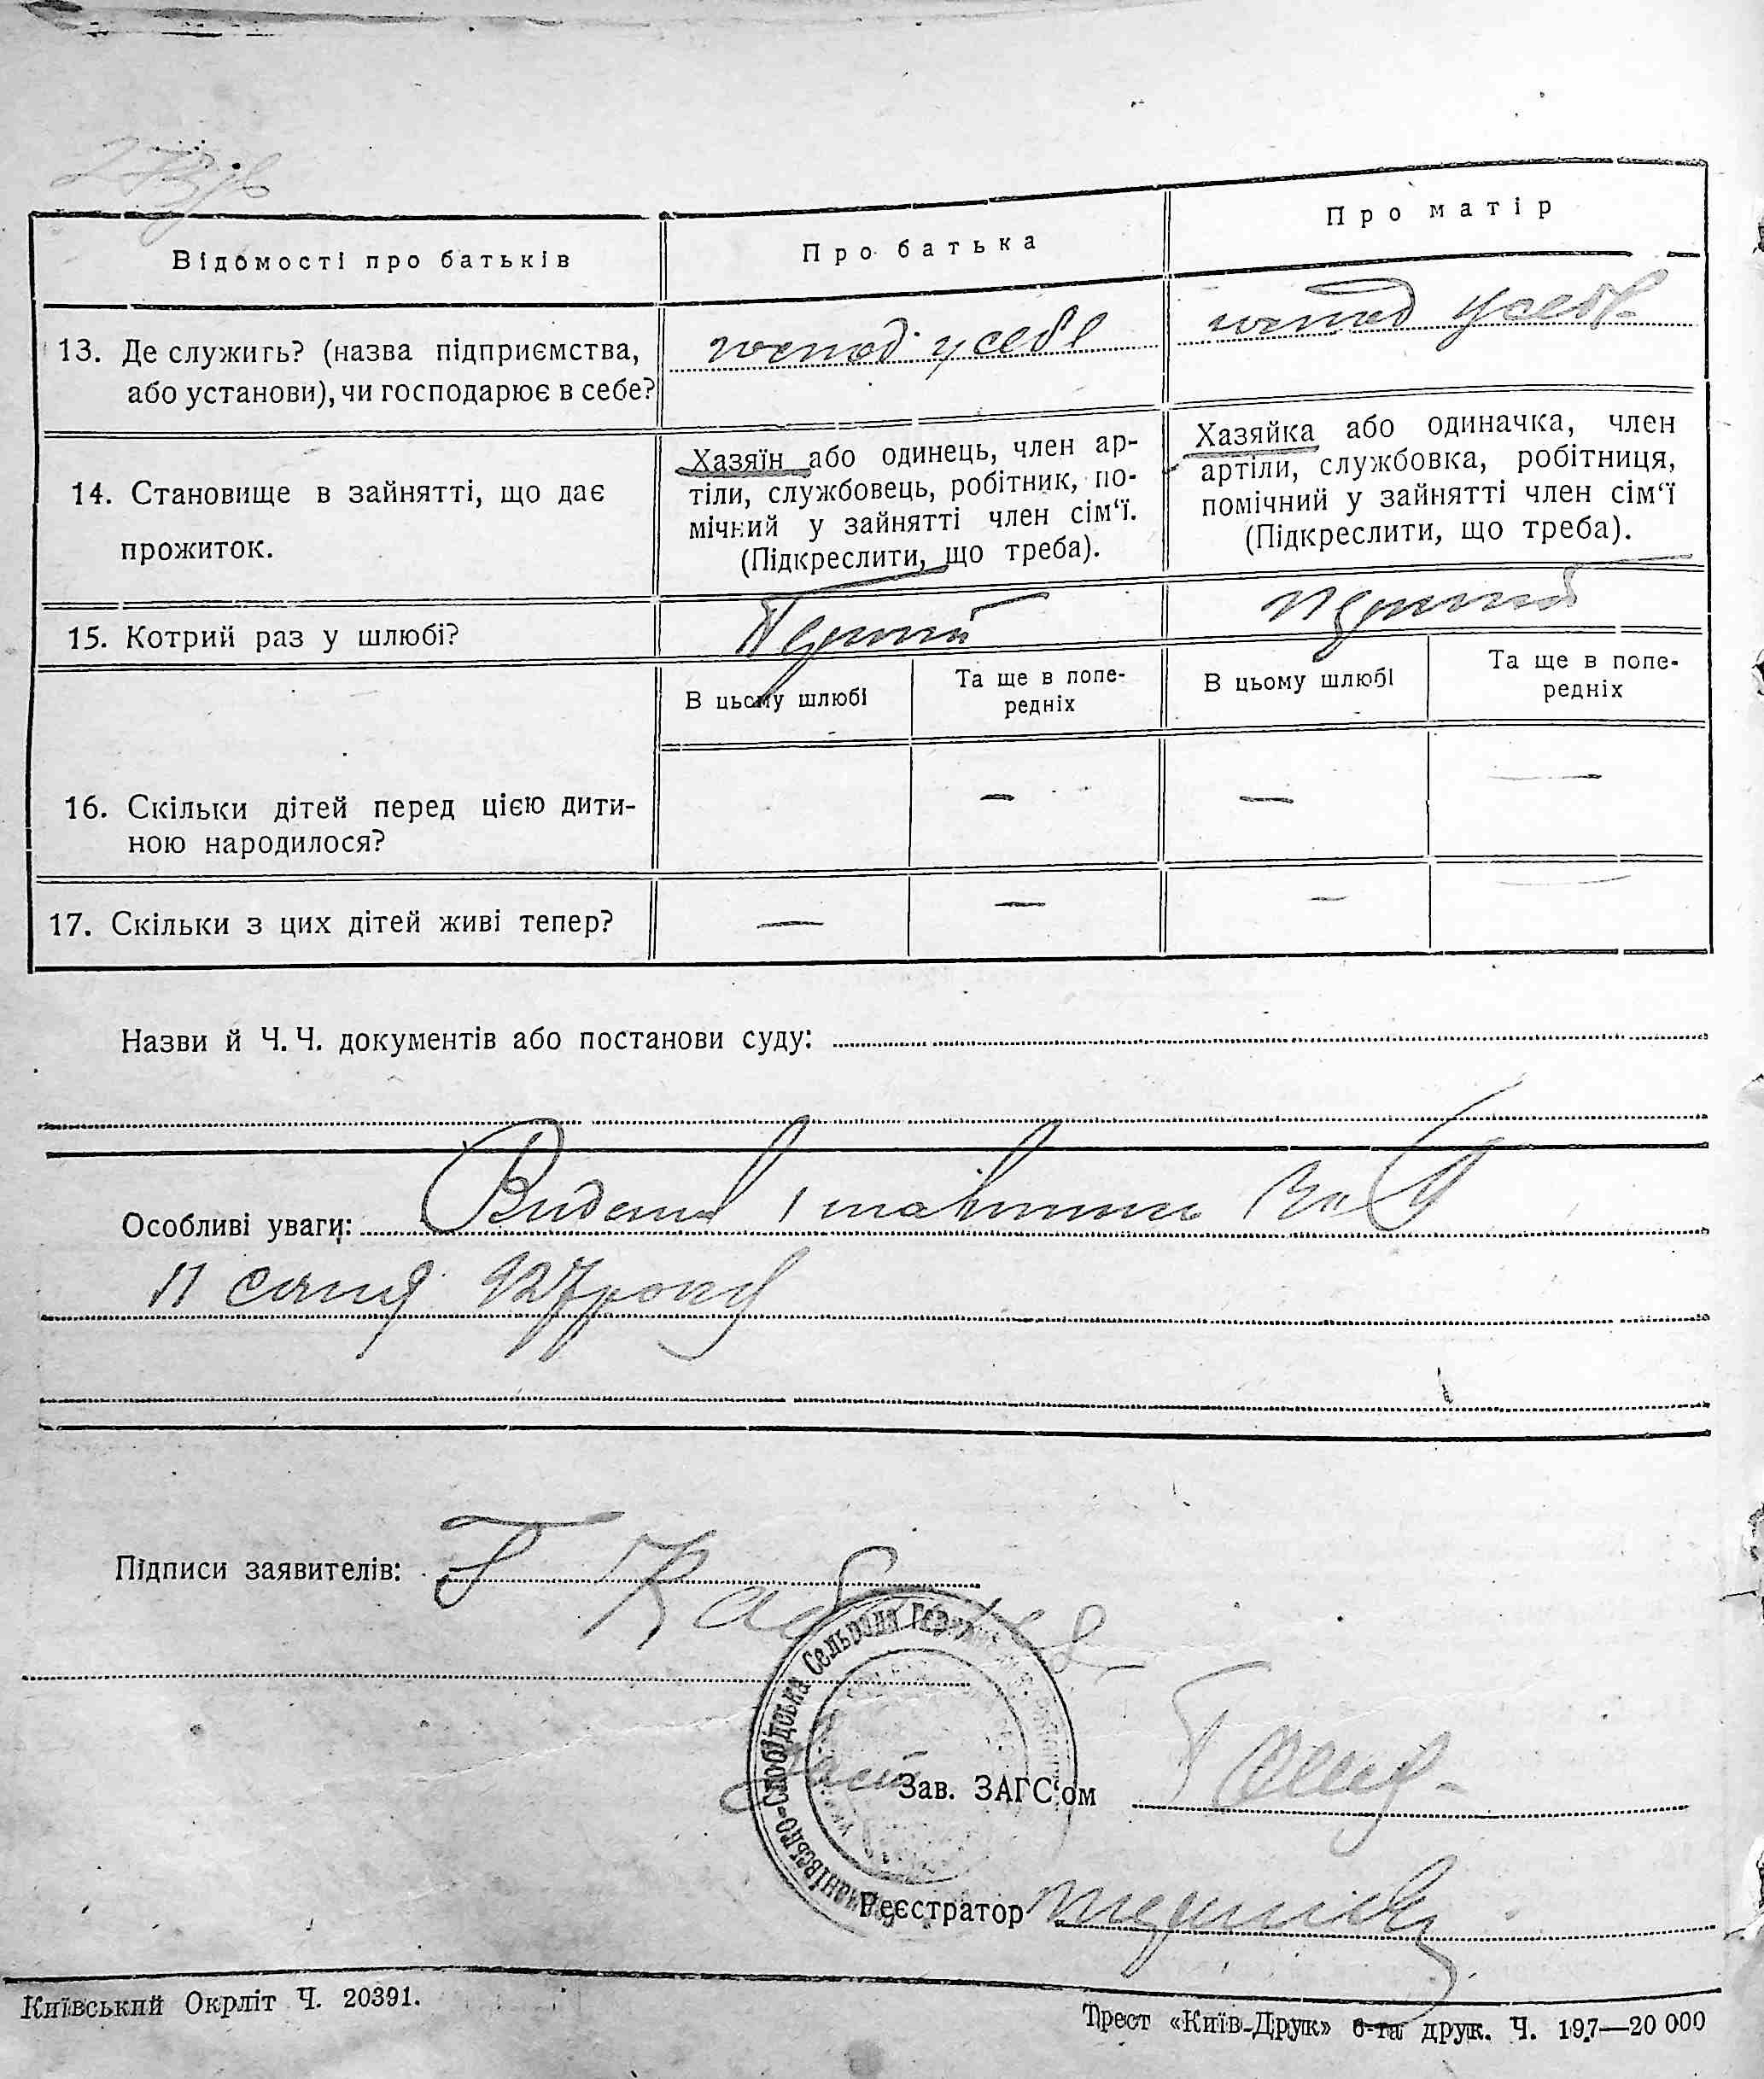 Відомості про батьків
Про батька
Про матір
13. Де служить? (назва підприємства,
або установи), чи господарює в себе?
господ. у себе
господ у себе
14. Становище в зайнятті, що дає
прожиток.
Хазяїн або одинець, член ар-
тіли, службовець, робітник, по-
мічний у зайнятті член сім‘ї.
(Підкреслити, що треба).
Хазяйка або одиначка, член
артіли, службовка, робітниця,
помічний у зайнятті член сім‘ї
(Підкреслити, що треба).
15. Котрий раз у шлюбі?
Перший
перший
В цьому шлюбі
Та ще в попе-
редніх
В цьому шлюбі
Та ще в попе-
редніх
16. Скільки дітей перед цією дити-
ною народилося?
— — —
17. Скільки з цих дітей живі тепер?
— — — —
Назви й Ч. Ч. документів або постанови суду:
Особливі уваги:
11 січня 927 року
Підписи заявителів:
Слобідська Сельрада
Зав. ЗАГС‘ом
Реєстратор
Київський Окрліт Ч. 20391.
Трест «Київ-Друк» 6-та друк. Ч. 197—20 000